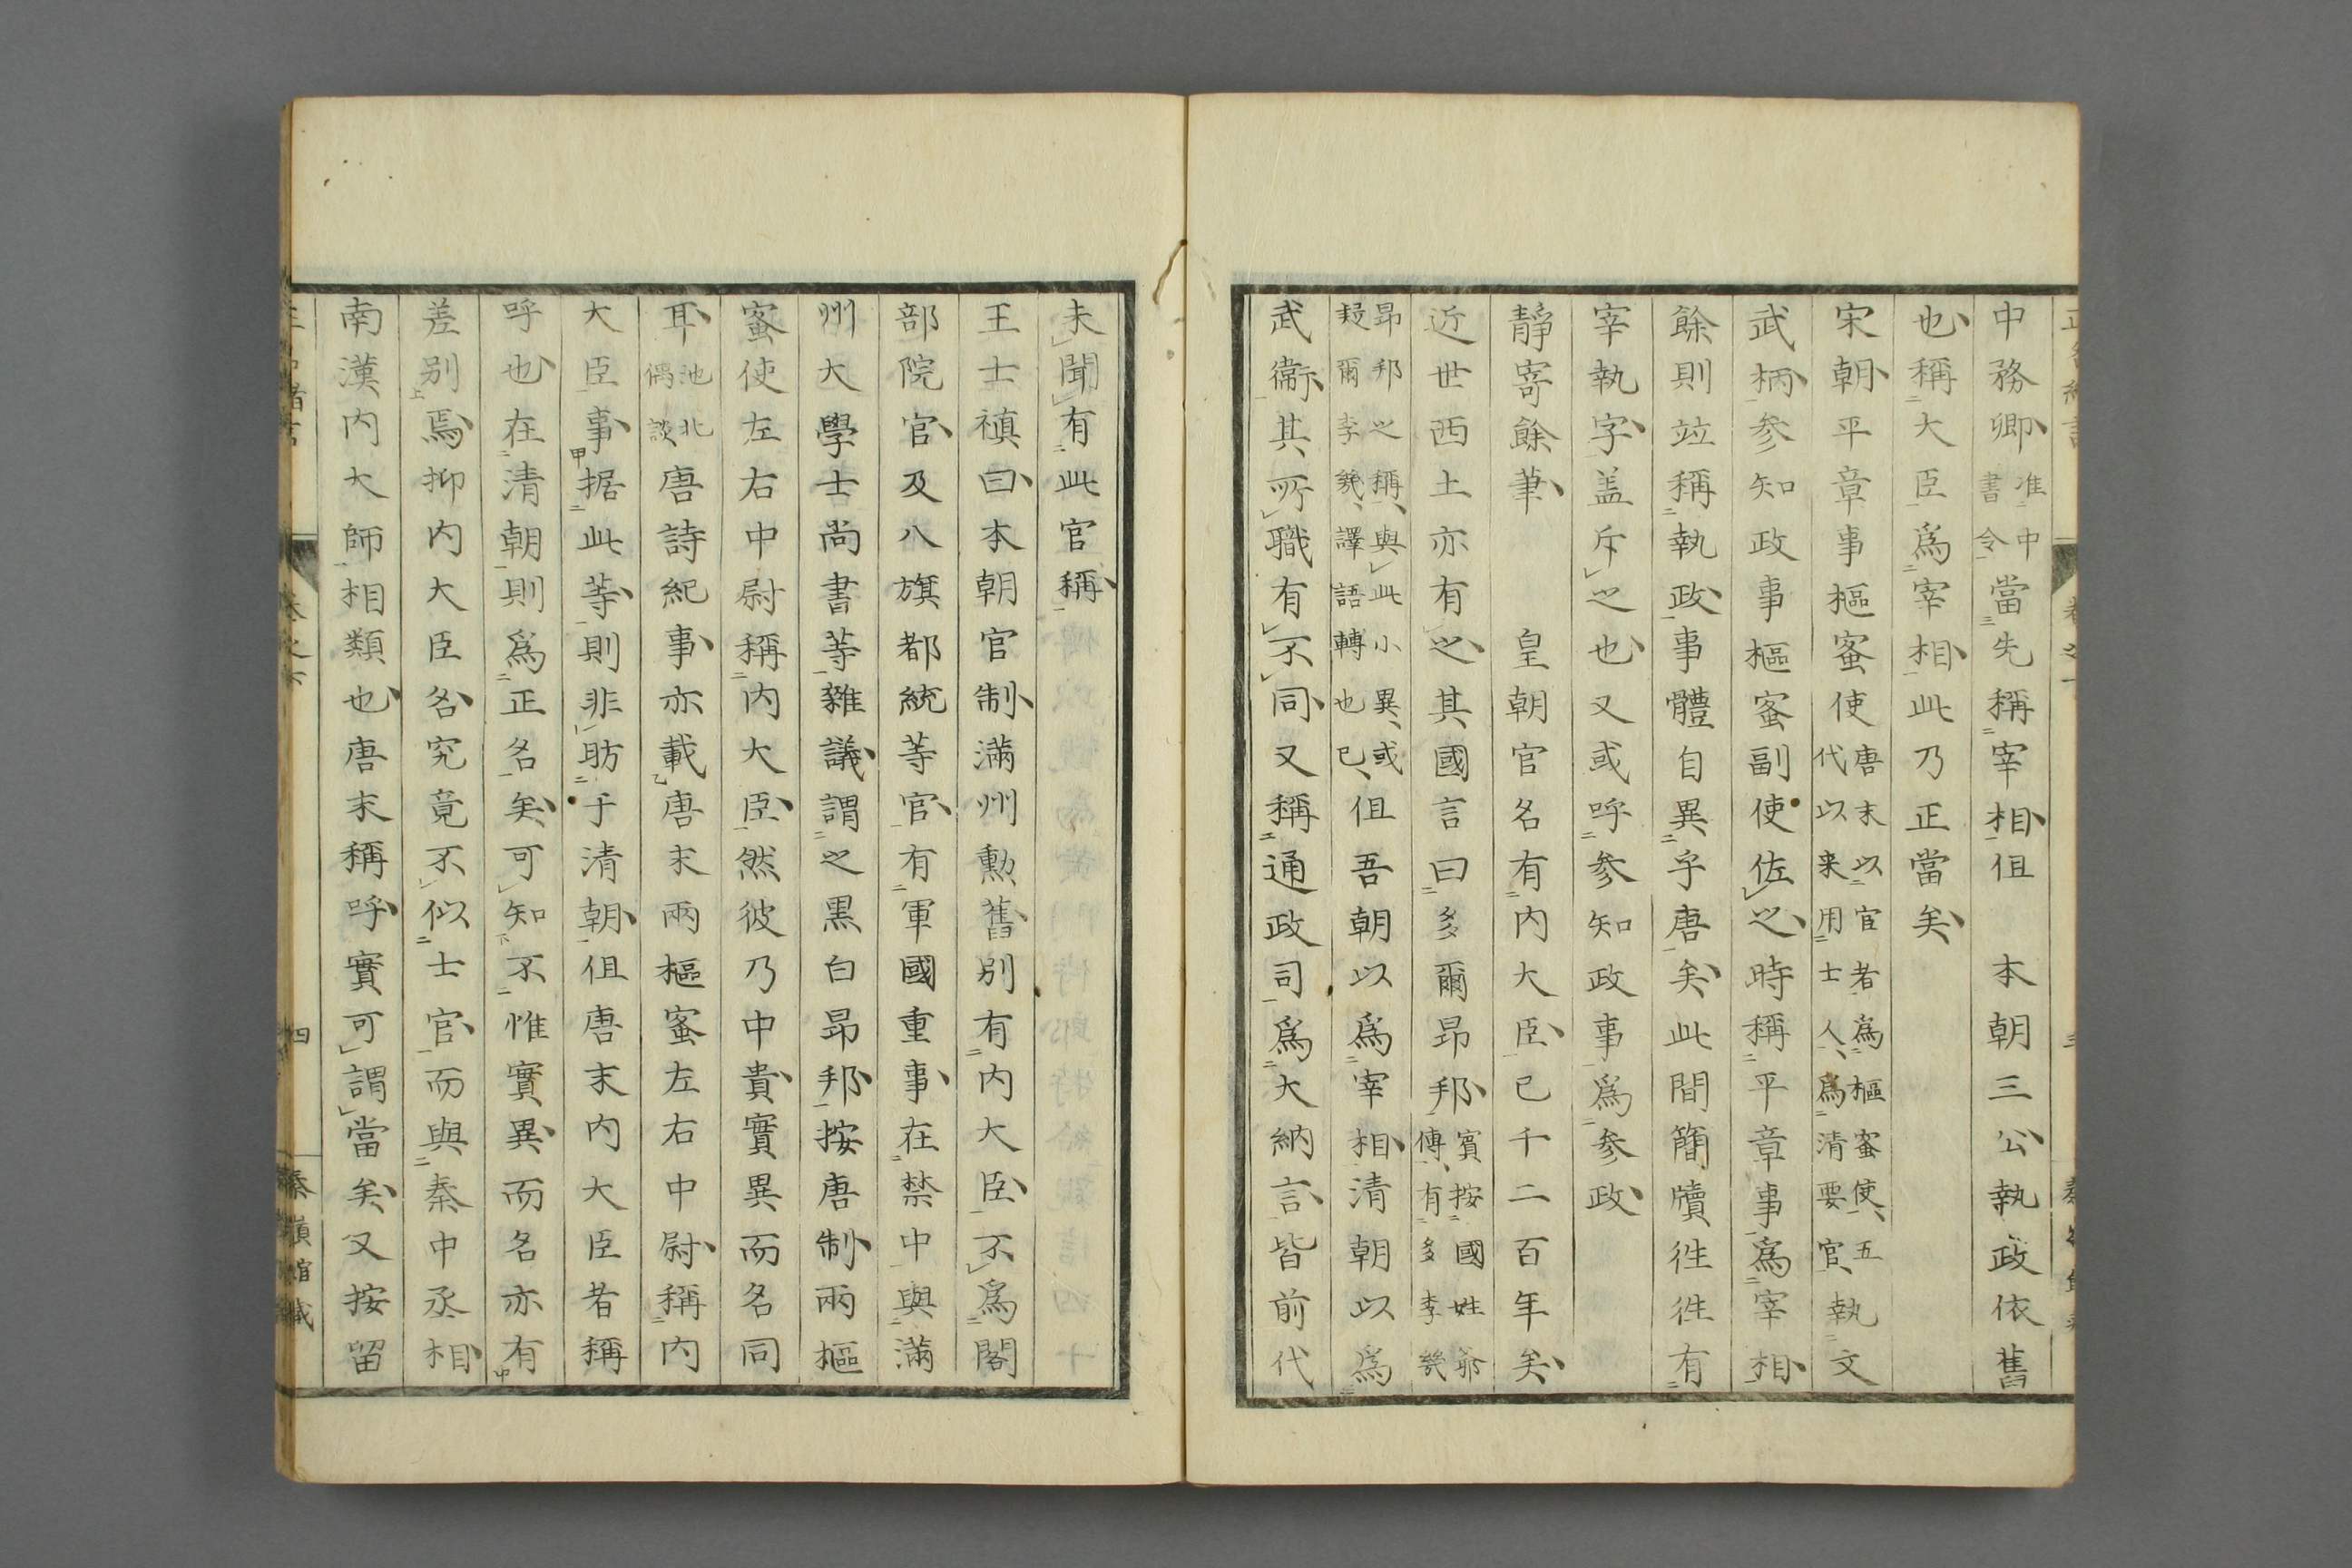 中務卿准中書令當先稱宰相但　本朝三公執政依舊
也稱大臣爲宰相此乃正當矣
宋朝平章事樞蜜使唐末以官者爲樞蜜使五代以来用士人爲清要官執文
武柄参知政事樞蜜副使佐之時稱平章事爲宰相
餘則竝稱執政事體自異乎唐矣此間簡牘徃徃有
宰執字盖斥之也又或呼参知政事爲参政
靜寄餘筆　皇朝官名有内大臣已千二百年矣
近世西土亦有之其國言曰多爾昂邦賓按國姓爺傳有多李㡬
昂邦之稱與此小異或㕛爾李㡬譯語轉也已但吾朝以爲宰相清朝以爲
武衞其所職有不同又稱通政司爲大納言皆前代
未聞有此官稱
王士禛曰本朝官制滿州勲舊别有内大臣不爲閣
部院官及八旗都統等官有軍國重事在禁中與滿
州大學士尚書等雜議謂之黒白昂邦按唐制兩樞
蜜使左右中尉稱内大臣然彼乃中貴實異而名同
耳池北偶談唐詩紀事亦載唐末兩樞蜜左右中尉稱内
大臣事据此等則非昉于清朝但唐末内大臣者稱
呼也在清朝則爲正名矣可知不惟實異而名亦有
差别焉抑内大臣名究竟不似士官而與秦中丞相
南漢内大師相類也唐末稱呼實可謂當矣又按留
卷之六
四